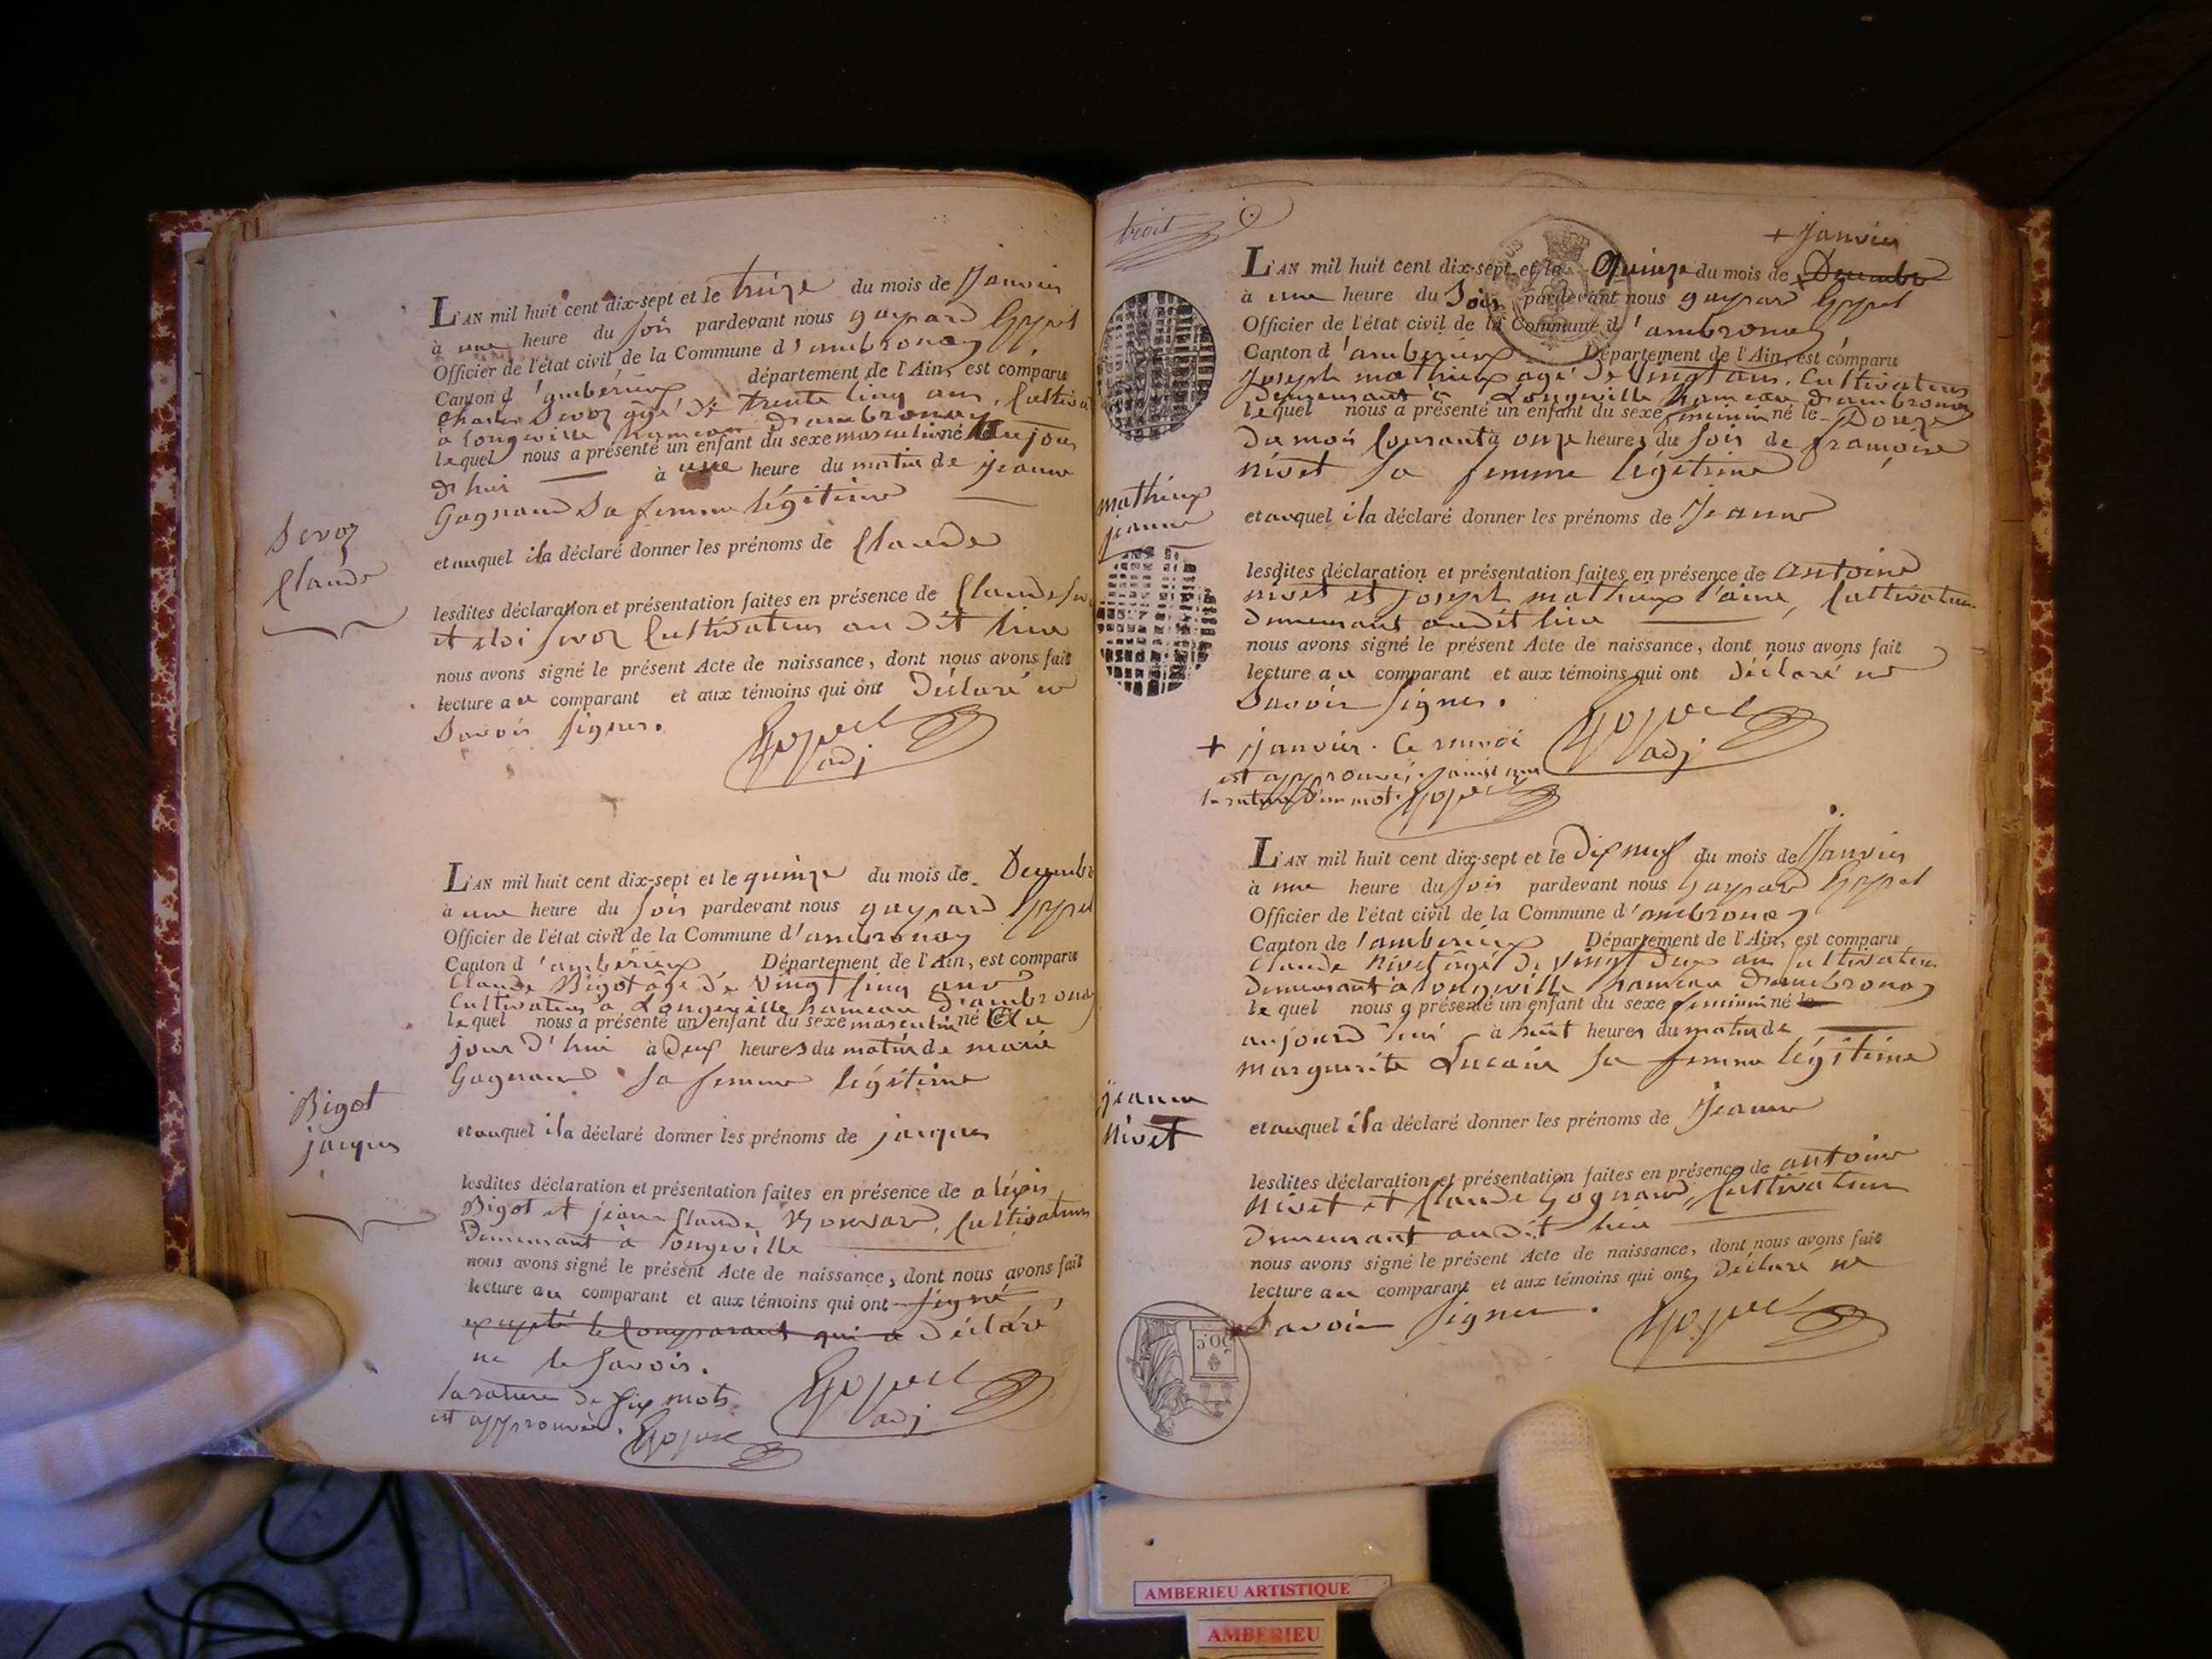 L'AN mil huit cent dix-sept et le treize du mois de Janvier
à une heure du soir pardevant nous gaspard
Officier de l'état civil de la Commune d'ambronay
Canton d'ambérieux département de l'Ain, est comparu
Charles Servoz agé de trente cinq ans,
à longeville hameau d'ambronay
lequel nous a présenté un enfant du sexe masculin né
d'hui à une heure du matin de jeanne
Gagnard Sa femme légitime
Servoz
Claude
et auquel il a déclaré donner les prénoms de Claude
lesdites déclaration et présentation faites en présence de Claude
et eloi servoz Cultivateurs au dit lieu
nous avons signé le présent Acte de naissance, dont nous avons fait
lecture au comparant et aux témoins qui ont Déclaré ne
Savoir signer.
adj
L'AN mil huit cent dix-sept et le quinze du mois de Decembre
à une heure du soir pardevant nous gaspard
Officier de l'état civil de la Commune d'ambronay
Canton d'ambérieux Département de l'Ain, est comparu
Claude Bigot âgé de vingt cinq ans
Cultivateur à Longeville hameau d'ambronay
lequel nous a présenté un enfant du sexe masculin né
jour d'hui à deux heures du matin de marie
Gagnard sa femme légitime
Bigot
jacques
et auquel il a déclaré donner les prénoms de jacques
lesdites déclaration et présentation faites en présence de
Bigot et jean Claude Cultivateurs
Demeurant à longeville
nous avons signé le présent Acte de naissance, dont nous avons fait
lecture au comparant et aux témoins qui ont signé
excepté le Comparant qui a Déclaré
ne le savoir.
la rature de six mots
est approuvée.
adj
troit
+ Janvier
L'AN mil huit cent dix-sept et le Quinze du mois de Decembre
à une heure du Soir pardevant nous gaspard
Officier de l'état civil de la Commune d'ambronay
Canton d'ambérieux Département de l'Ain, est comparu
Joseph mathieux agé de Vingt ans, Cultivateur
Demeurant à Longeville hameau d'ambronay
lequel nous a présenté un enfant du sexe feminin né le Douze
du mois Courant à onze heures du soir de françoise
Nivet sa femme légitime
mathieux
jeanne
et auquel il a déclaré donner les prénoms de Jeanne
lesdites déclaration et présentation faites en présence de antoine
nivet et joseph mathieux l'ainé, Cultivateurs
demeurant audit lieu
nous avons signé le présent Acte de naissance, dont nous avons fait
lecture au comparant et aux témoins qui ont déclaré ne
Savoir signer.
adj
+ janvier. Ce renvoi
est approuvé, ainsi que
la rature d'un mot.
L'AN mil huit cent dix-sept et le Dix neuf du mois de Janvier
à une heure du soir pardevant nous Gaspard
Officier de l'état civil de la Commune d'ambronay
Canton de l'amberieux Département de l'Ain, est comparu
Claude Nivet âgé de vingt deux ans Cultivateur
Demeurant à longeville hameau d'ambronay
lequel nous a présenté un enfant du sexe feminin né le
aujourd'hui à huit heures du matin de
marguerite sa femme légitime
jeanne
Nivet
et auquel il a déclaré donner les prénoms de Jeanne
lesdites déclaration et présentation faites en présence de antoine
Nivet et Claude Gagnard, Cultivateurs
Demeurant audit lieu
nous avons signé le présent Acte de naissance, dont nous avons fait
lecture au comparant et aux témoins qui ont Déclaré ne
Savoir signer.
50.C
AMBERIEU ARTISTIQUE
AMBERIEU